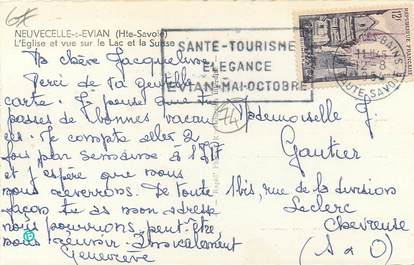 NEUVECELLE-s-EVIAN (Hte-Savoie)
L'Eglise et vue sur le Lac et la Suisse
SANTE-TOURISME
ELEGANCE
EVIAN-MAI-OCTOBRE
12F
HAUTE SAVOIE
74
Ma chère Jacqueline
Merci de ta gentille
carte. Je pense que tu
passes de bonnes vacan
ces. Je compte aller 2
fois par semaine à l'
et j'espère que nous
nous reverrons. De toute
façon tu as mon adresse
nous pourrions peut-être
nous réunir. Amicalement
Geneviève
Mademoiselle J.
Gautier
1 bis, rue de la division
Leclerc
Chevreuse
(S & O)